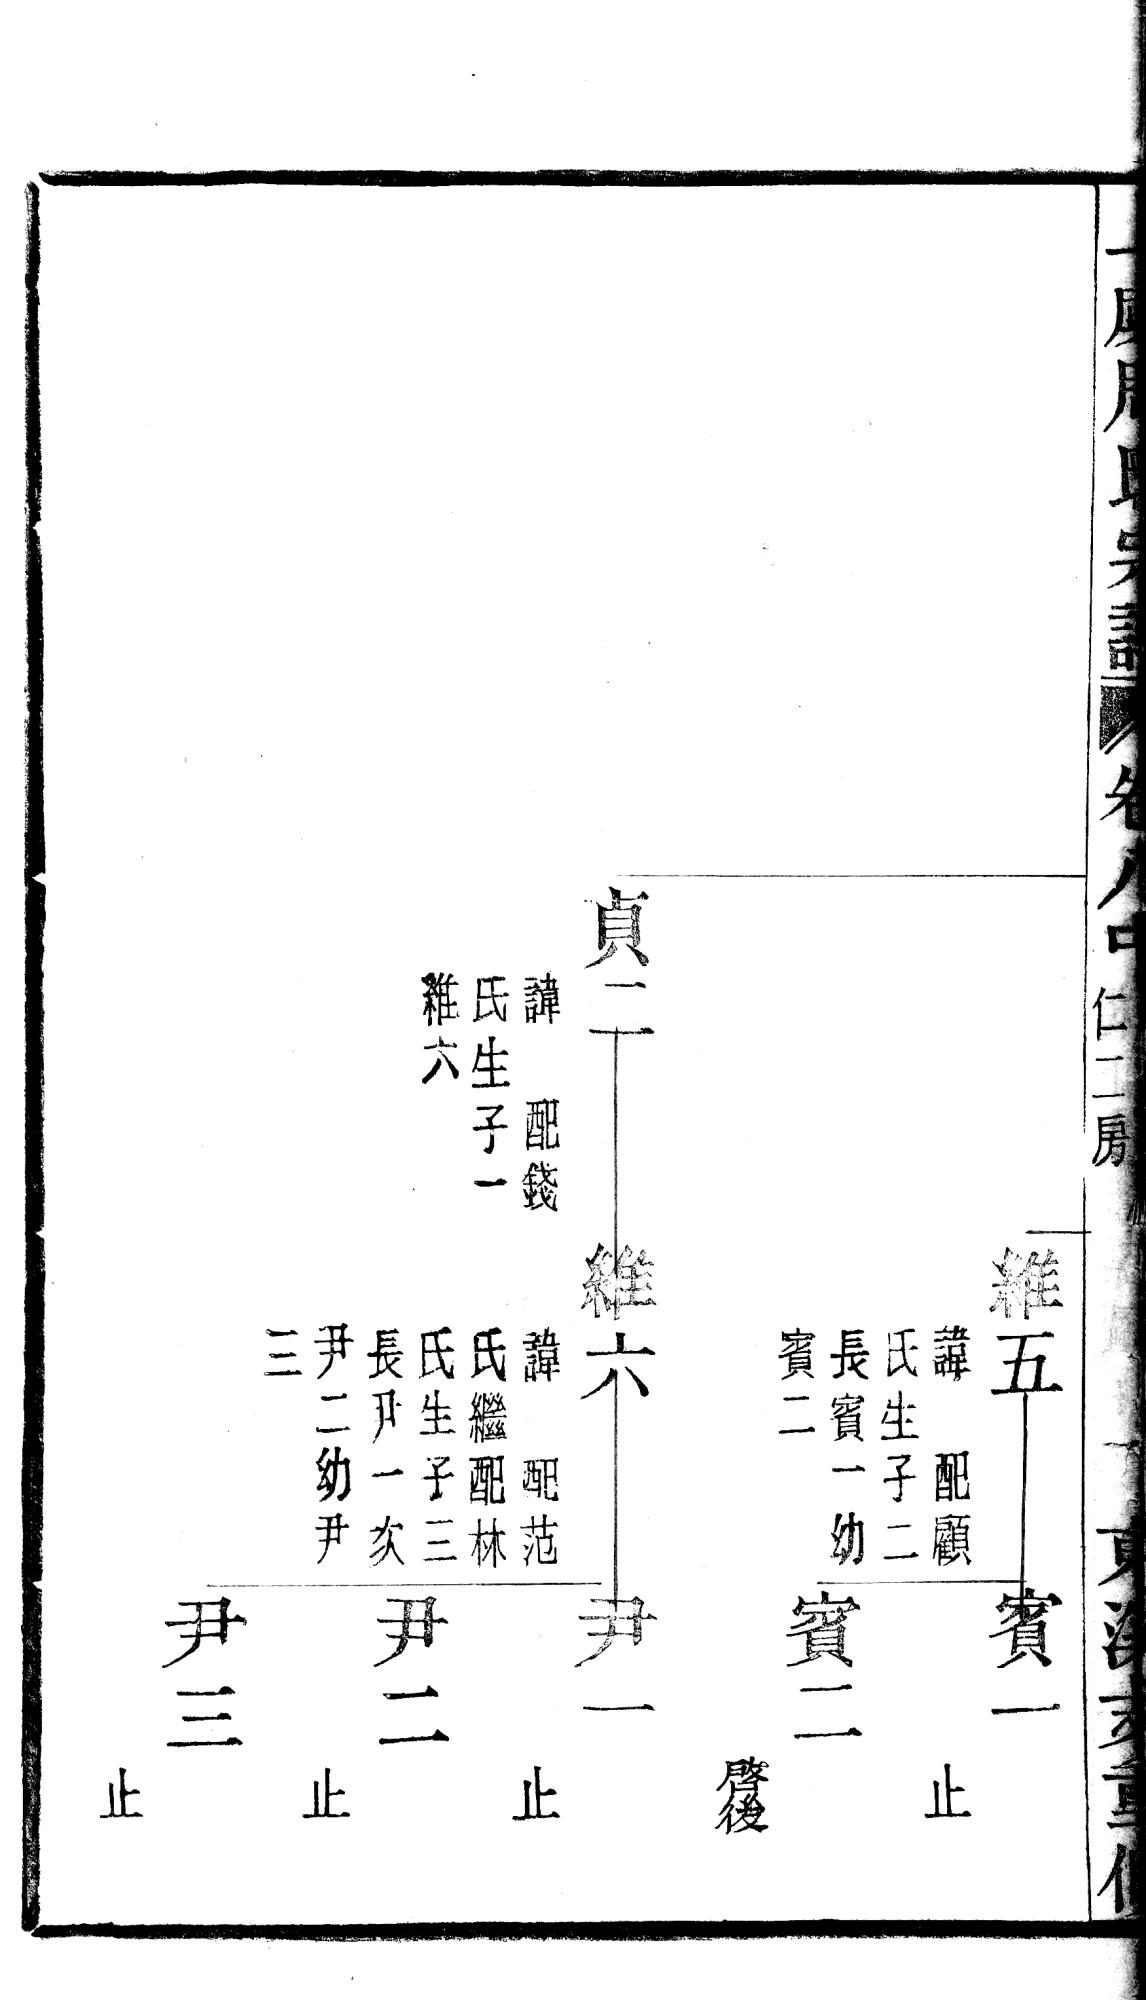 維五
諱　配顧
氏生子二
長賓一幼
賓二
賓一
止
賓二
啓後
貞二
諱　配錢
氏生子一
維六
維六
諱　配范
氏繼配林
氏生子三
長尹一次
尹二幼尹
三
尹一
止
尹二
止
尹三
止
卷八中
仁二房